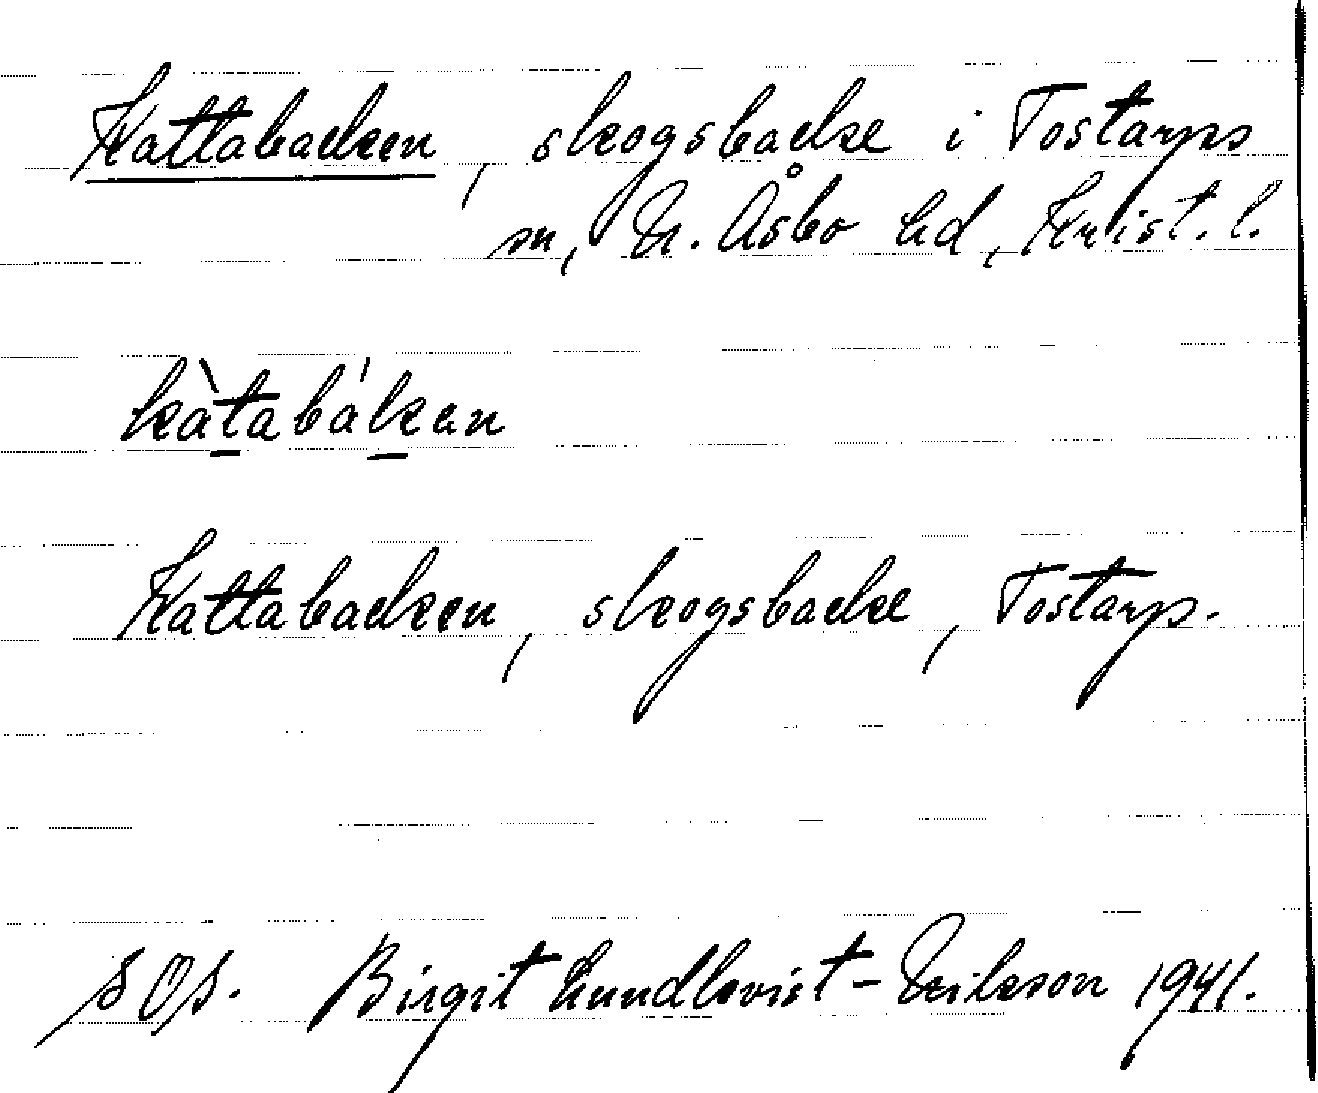 Kattabacken, skogsbacke i Tostarps
sn, N. Åsbo hd, Krist. l.
kàtabákan
Kattabacken, skogsbacke, Tostarp.
SOS. Birgit Lundkvist-Nilsson 1941.